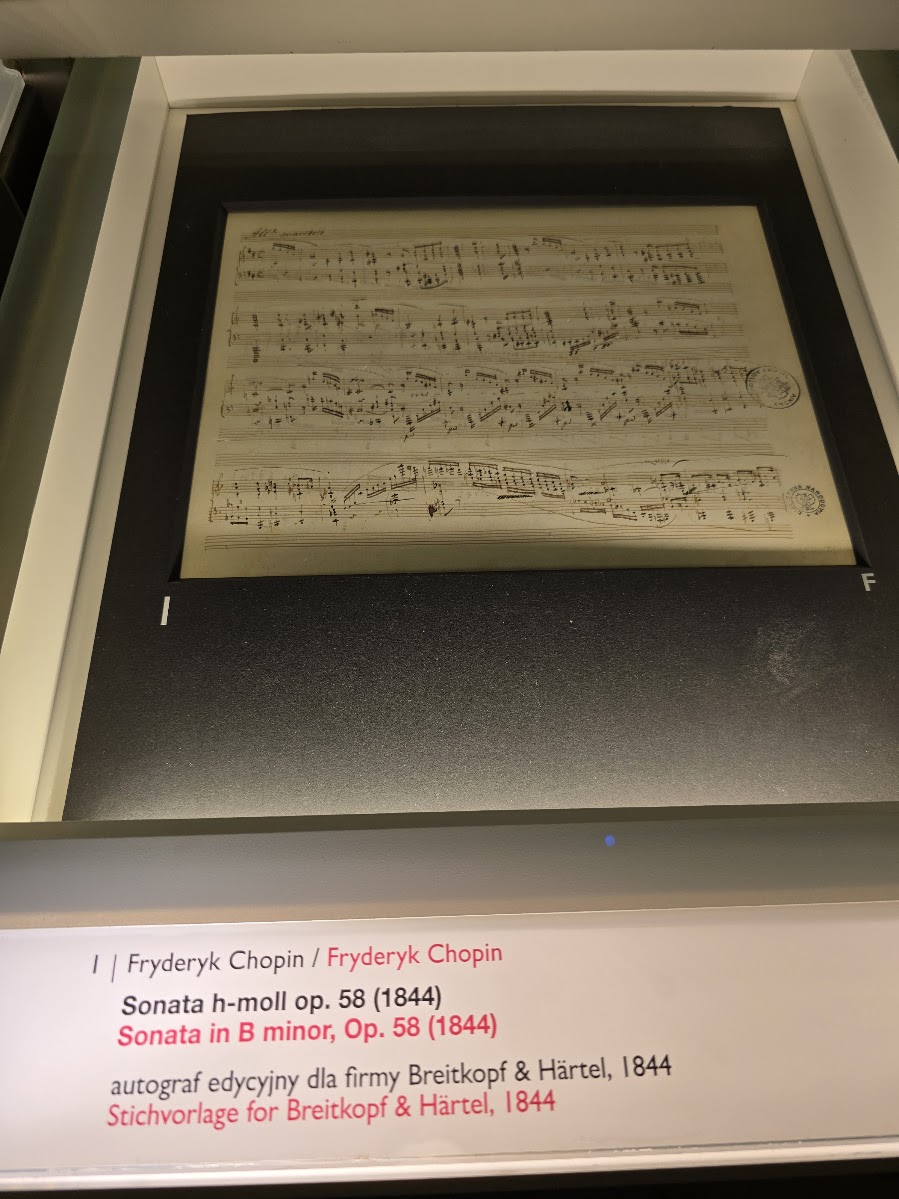 All° maestoso
I
F
I | Fryderyk Chopin / Fryderyk Chopin
Sonata h-moll op. 58 (1844)
Sonata in B minor, Op. 58 (1844)
autograf edycyjny dla firmy Breitkopf & Härtel, 1844
Stichvorlage for Breitkopf & Härtel, 1844